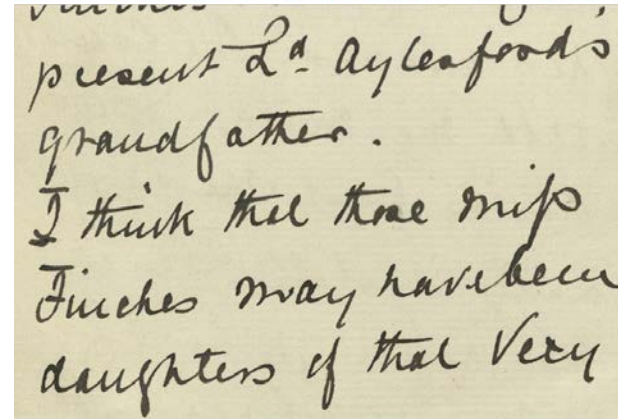 present Ld Aylesford's
grandfather.
I think that those Miss
Finches may have been
daughters of that very